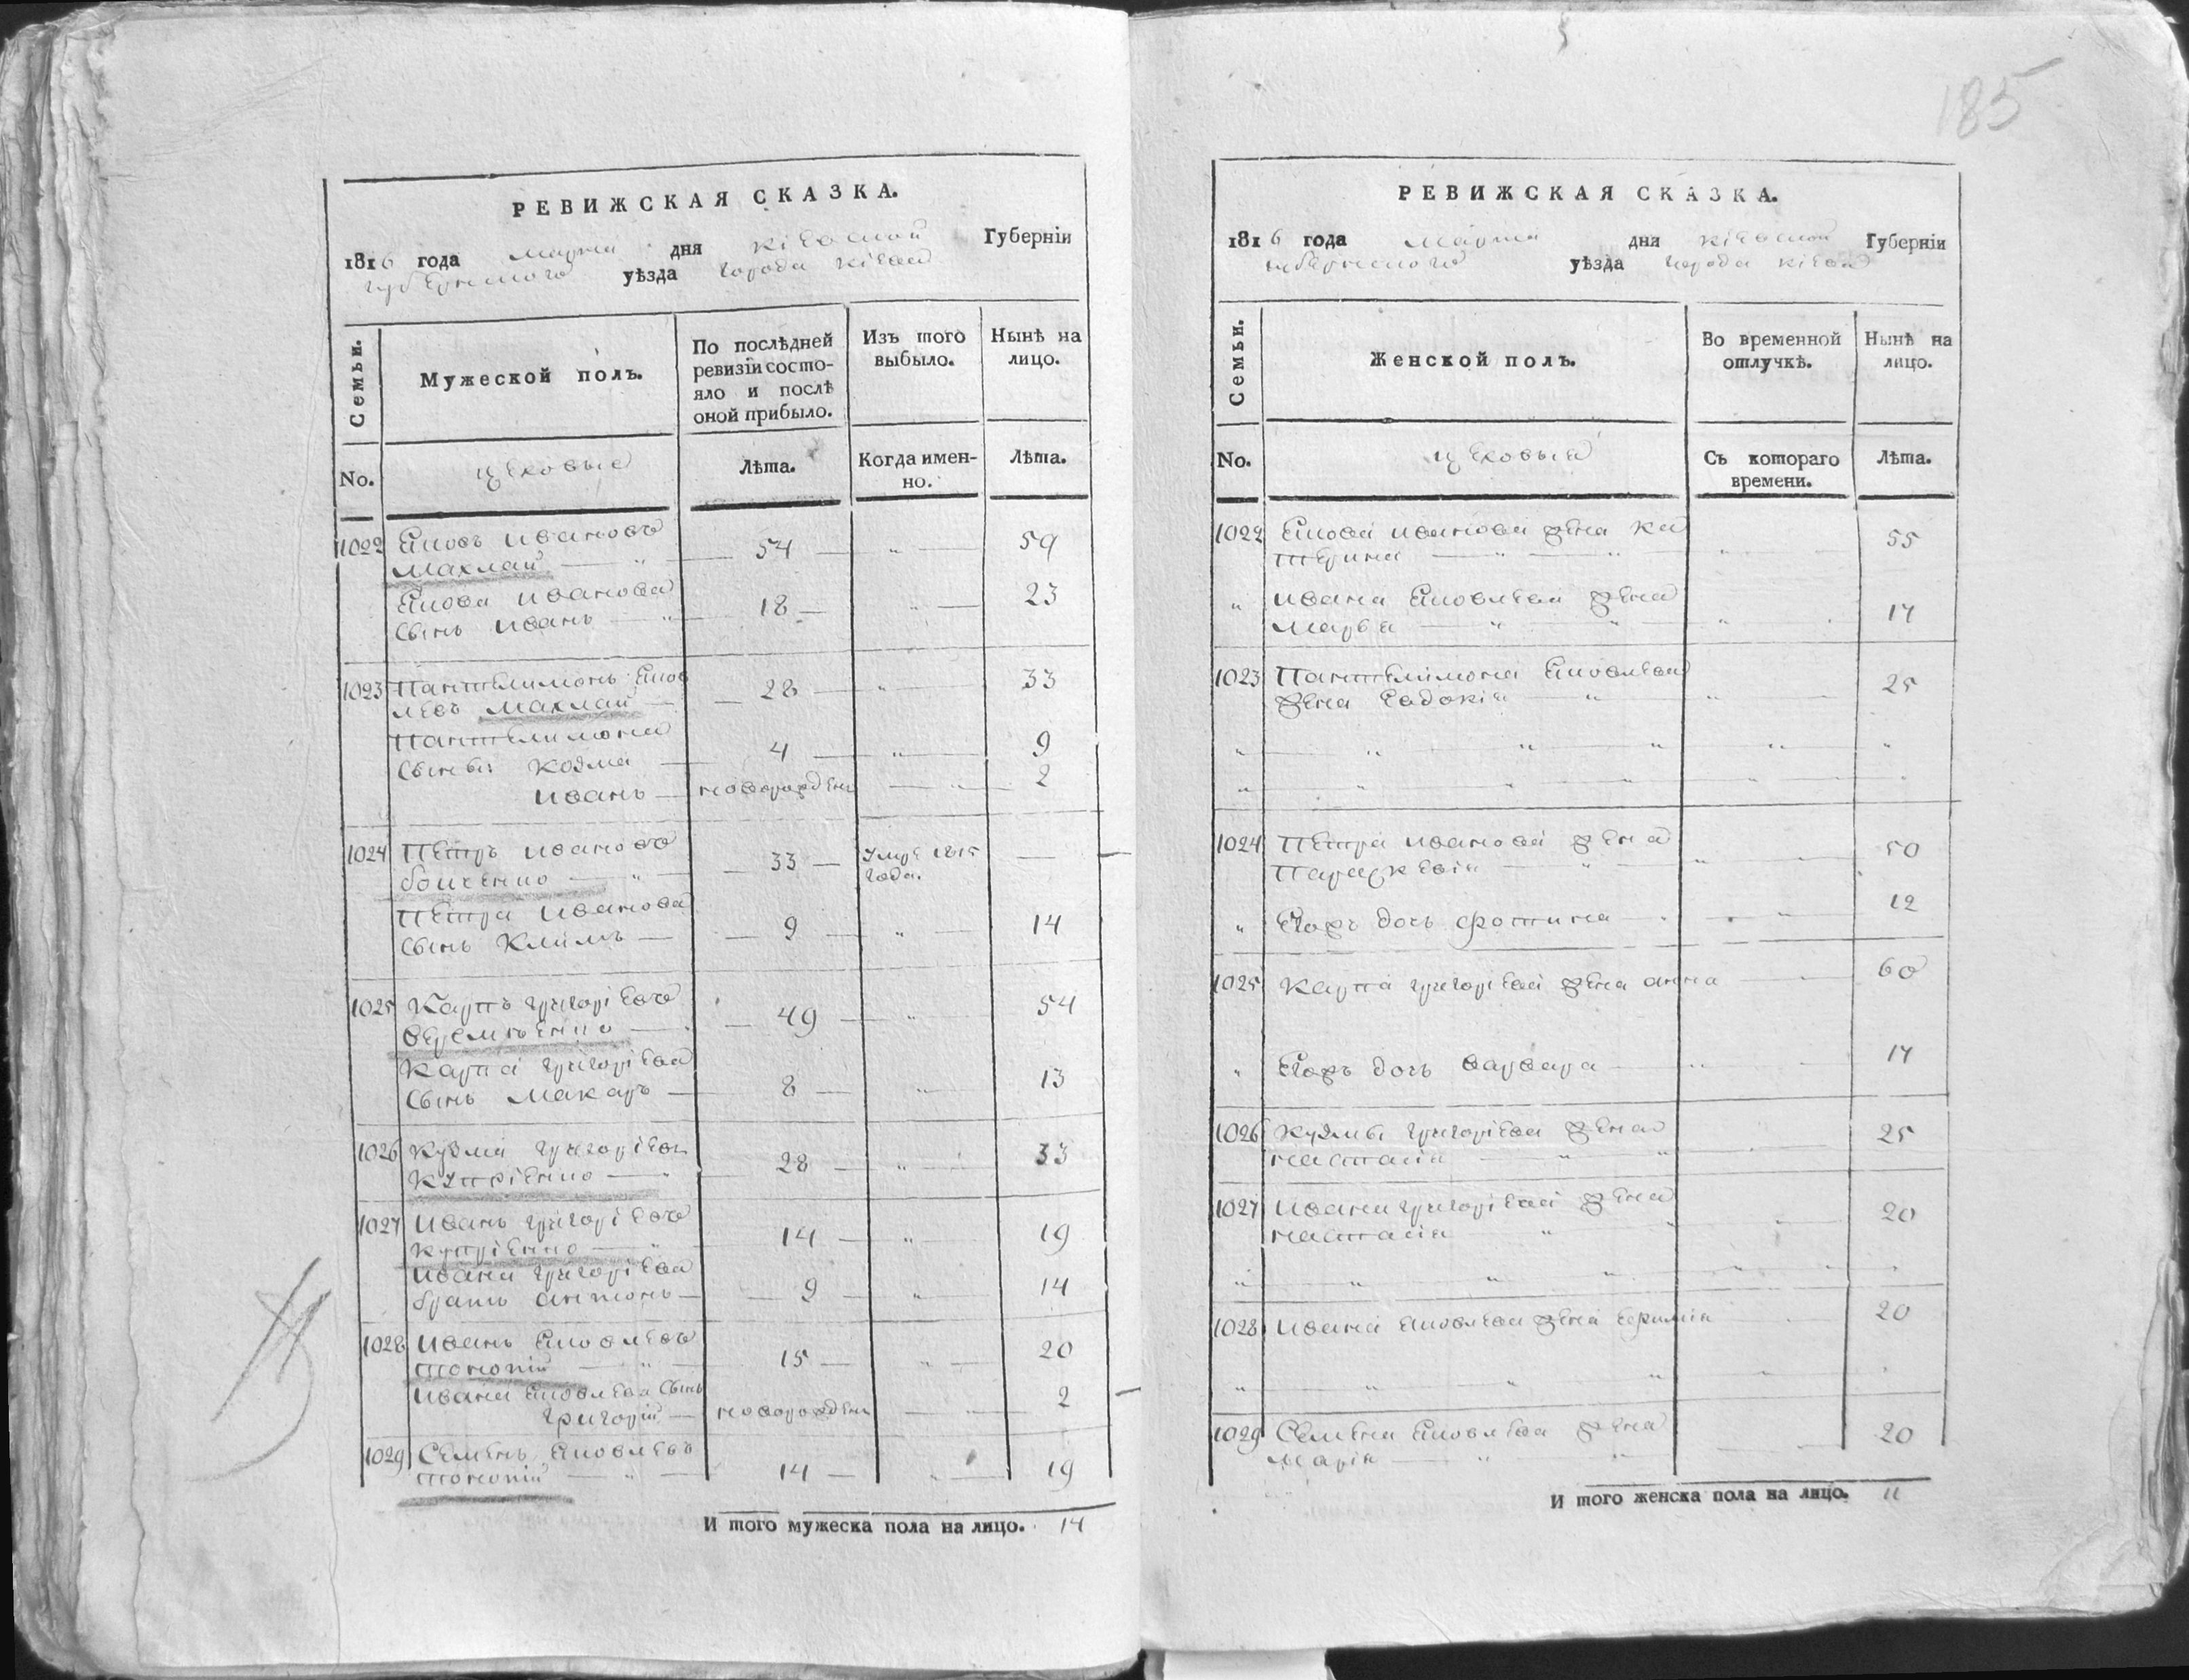 185
РЕВИЖСКАЯ СКАЗКА.
1816 года марта дня кіевской Губерніи
губернского уѣзда города кіева
Семьи.
Мужеской полъ.
По послѣдней ревизіи состо-
яло и послѣ
оной прибыло.
Изъ того
выбыло.
Нынѣ на
лицо.
No.
цеховые
Лѣта.
Когда имен-
но.
Лѣта.
1022 Яковъ Ивановъ
Махлай — " — 54 — " — 59
Якова Иванова
сынъ Иванъ — " — 18 — " — 23
1023 Пантелимонъ Яков
левъ Махлай — 28 — " — 33
Пантелимона
сынъы Козма — 4 — " — 9
Иванъ — новорожден — " — 2
1024 Петръ Ивановъ
бойченко — " — 33 — умре 1815 —
года.
Петра Иванова
сынъ Климъ — 9 — " — 14
1025 Карпъ Григоріевъ
— 49 — " — 54
Карпа Григоріева
сынъ Макаръ — 8 — " — 13
1026 Кузма Григоріевъ
Купріенко — " 28 — " — 33
1027 Иванъ Григоріевъ
Купріенко — " 14 — " — 19
Ивана Григоріева
братъ Антонъ — 9 — " — 14
1028 Иванъ Яковлевъ
— " — 15 — " — 20
Ивана Яковлева сынъ
Григорій — новорожден — 2
1029 Семенъ Яковлевъ
— " — 14 — " — 19
И того мужеска пола на лицо. 14
РЕВИЖСКАЯ СКАЗКА.
1816 года марта дня кіевской Губерніи
губернского уѣзда города кіева
Семьи.
Женской полъ.
Во временной
отлучкѣ.
Нынѣ на
лицо.
No.
цеховыя
Съ котораго
времени.
Лѣта.
1022 Якова Иванова жена Ка
терина — " — " — " — 55
" Ивана Яковлева жена
Марва — " — " — " 17
1023 Пантелимона Яковлева
жена Евдокія — " — " — 25
1024 Петра Иванова жена
Параскевія — " — " — 50
" Егожъ дочь Фотина — " — 12
1025 Карпа Григоріева жена Анна — 60
" Егожъ дочь Варвара — " — 17
1026 Кузмы Григоріева жена
Настасія — " — " 25
1027 Ивана Григоріева жена
Настасія " — " — 20
1028 Ивана Яковлева жена Ефимія — 20
1029 Семена Яковлева жена
Марія — " — " — 20
И того женска пола на лицо. 11